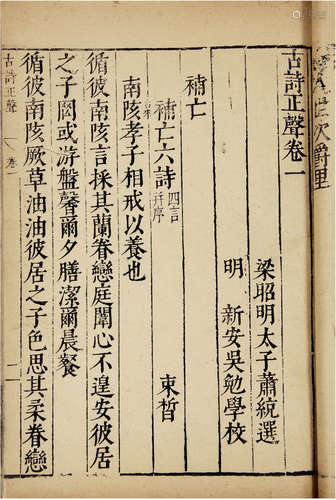 古詩正聲卷一
梁昭明太子蕭統選
明 新安吳勉學校
補亡
補亡六詩 四言 并序 束皙
南陔孝子相戒以養也
循彼南陔言採其蘭眷戀庭闈心不遑安彼居
之子罔或游盤馨爾夕膳潔爾晨餐
循彼南陔厥草油油彼居之子色思其柔眷戀
古詩正聲 卷一